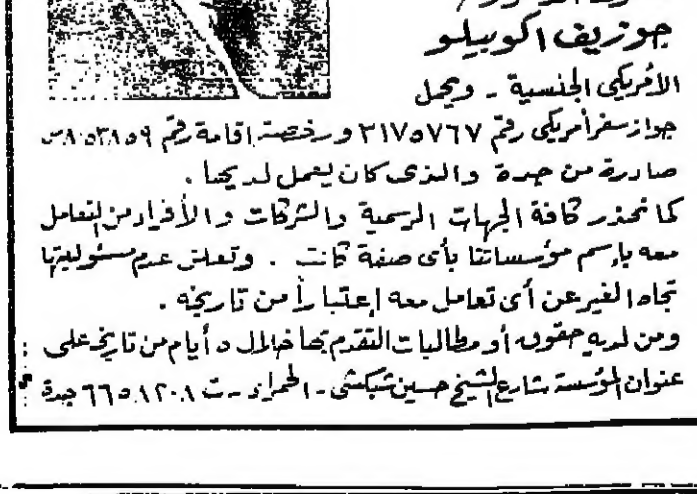 جوزيف اكوبيلو
الأمريكي الجنسية - ويحمل
جواز سفر أمريكي رقم ٢١٧٥٧٦٧ ورخصة إقامة رقم
صادرة من جدة والذي كان يعمل لديها .
كما تحذر كافة الجهات الرسمية والشركات والأفراد من التعامل
معه بإسم مؤسساتنا بأى صفة كانت . وتعلن عدم مسئوليتها
تجاه الغير عن أى تعامل معه إعتباراً من تاريخه .
ومن لديه حقوق أو مطالبات التقدم بها خلال ٥ أيام من تاريخ على
عنوان المؤسسة شارع الشيخ حسين شبكشى - الحمراء - ت جدة